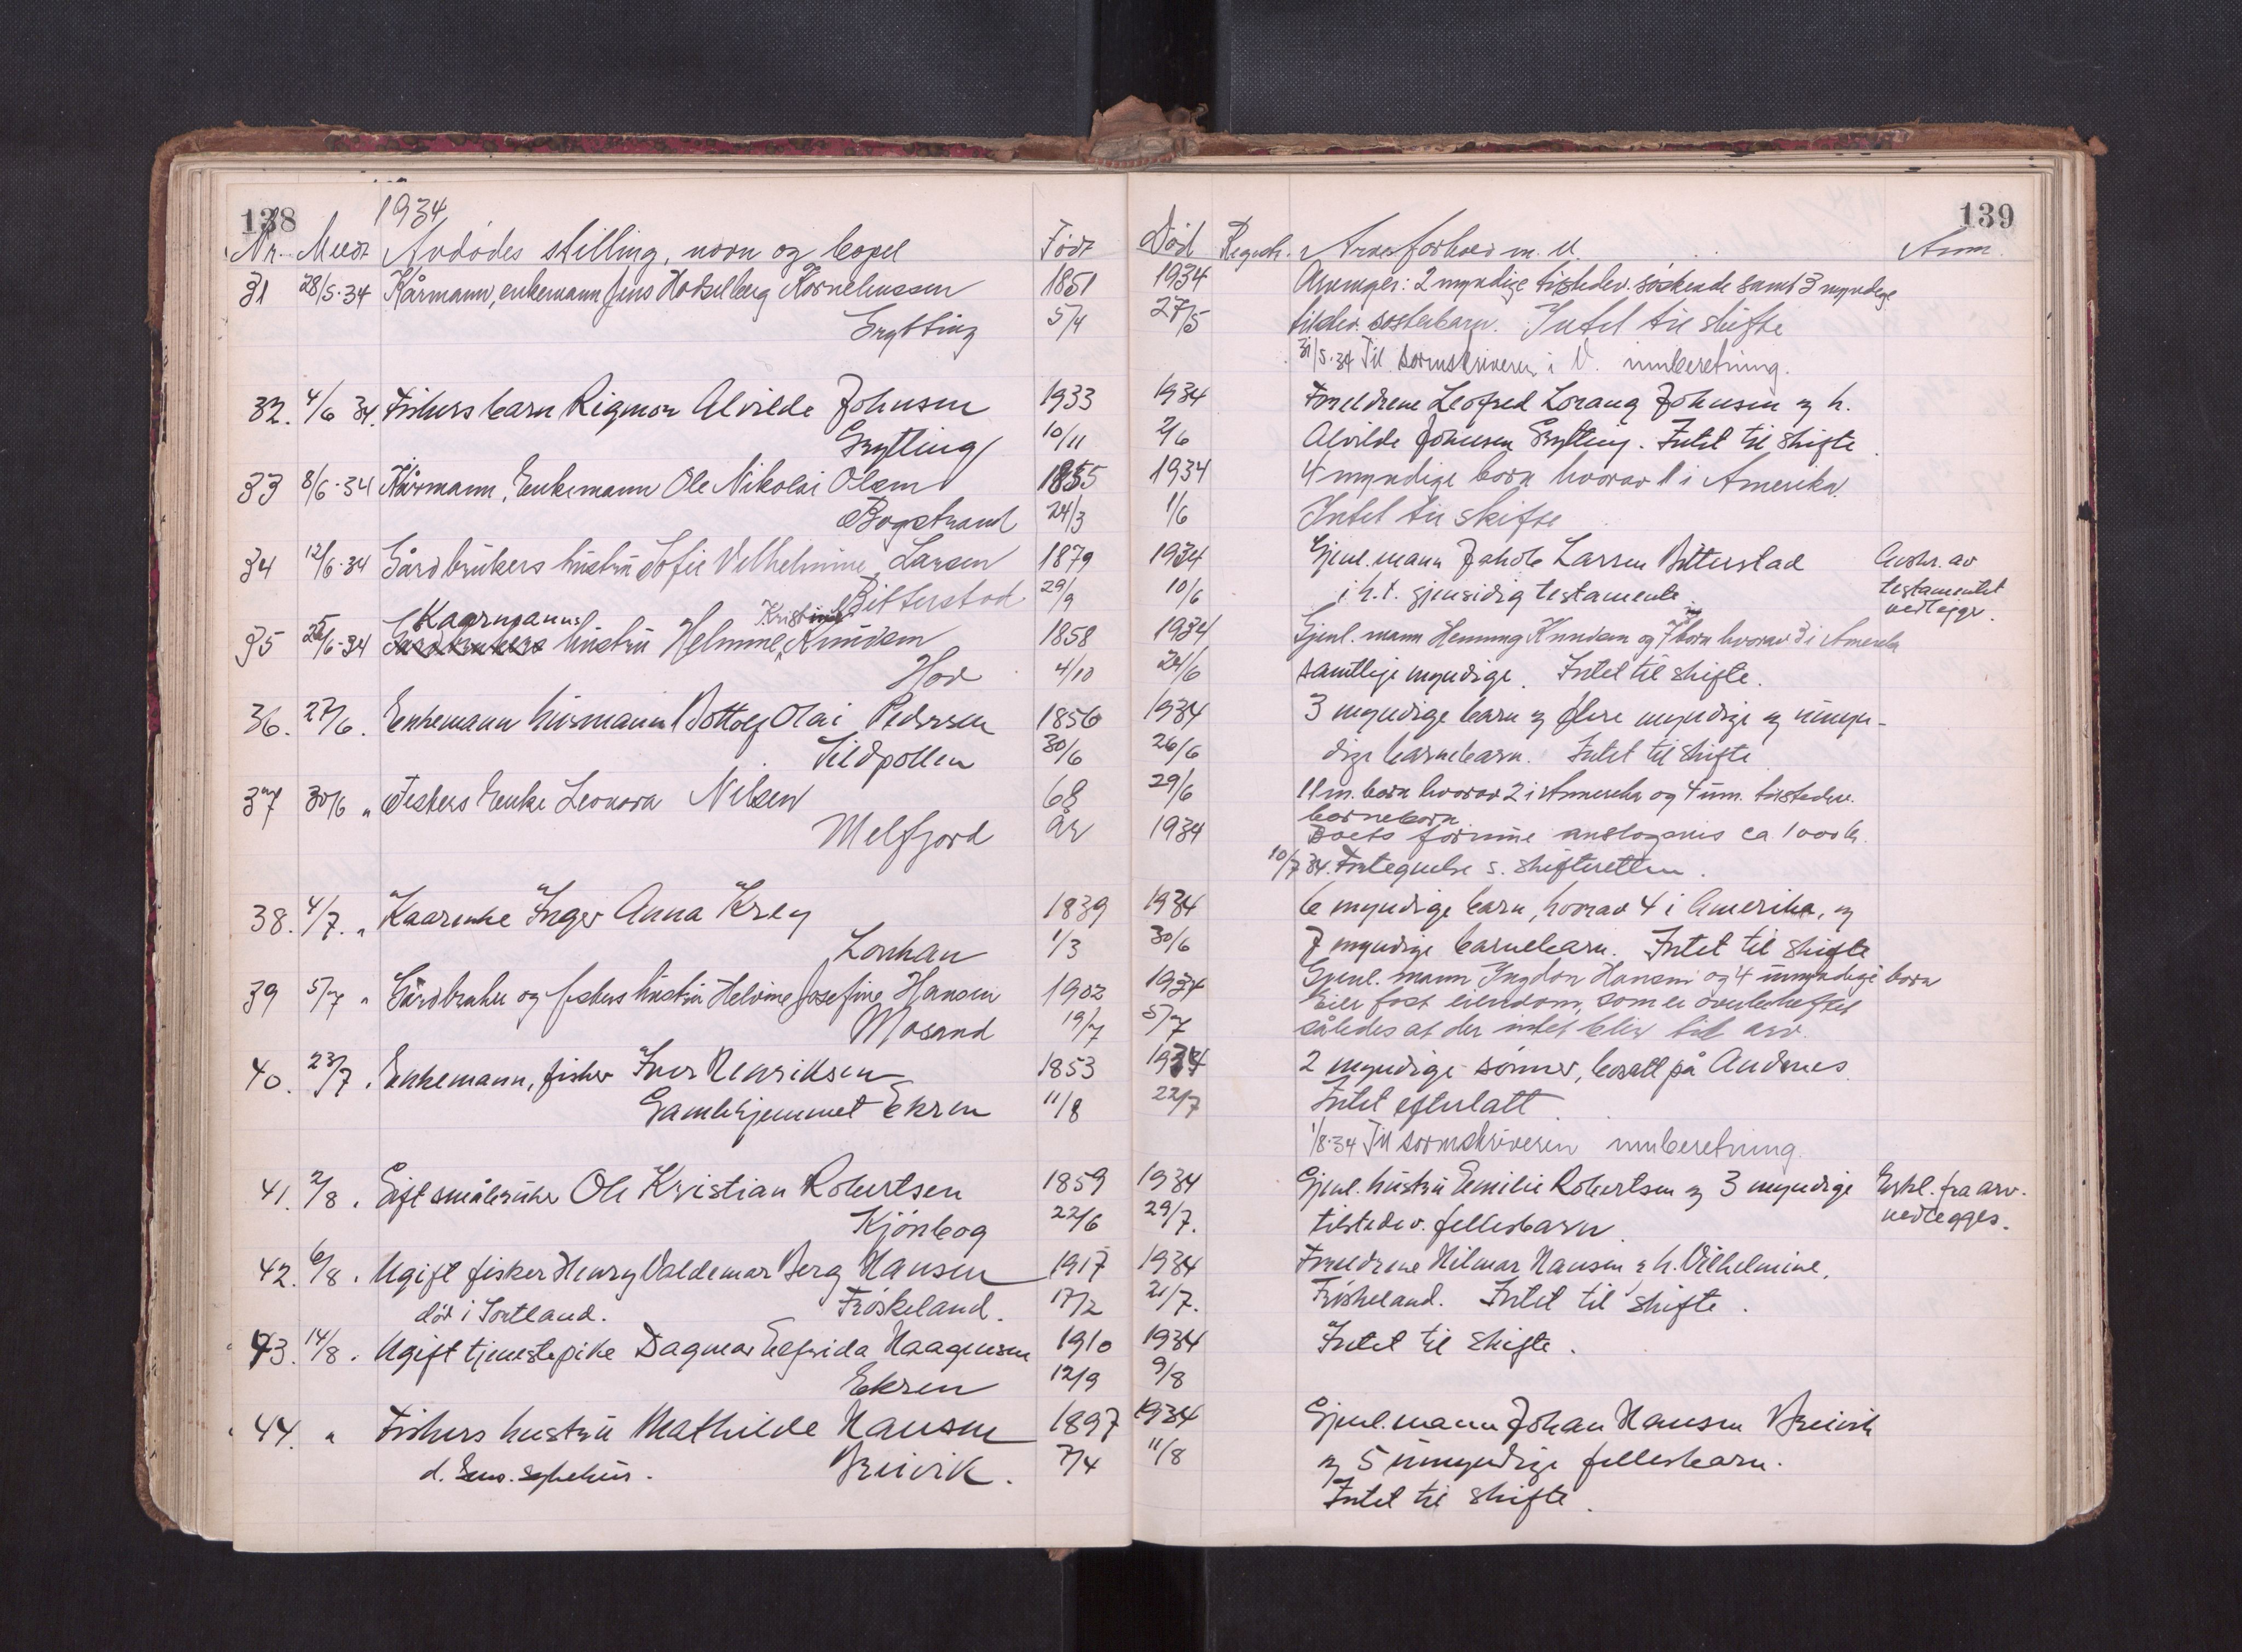 138
1934
139
Nr. Meldt Avdødes stilling, navn og bopel Født Død Regnsk. Arvesforhold m. v. Anm.
31 28/5-34 Kårmann, enkemann Jens Hadselberg Kornelinssen 1851 1934 Arvinger: 2 myndige tilstedev. søskende samt 3 myndige
Grytting 5/4 27/5 tilstdev. søsterbarn. Intet til skifte
31/5-34 Til sorenskriveren i V. innberetning.
32. 4/6 34. Fiskers barn Rigmor Alvilde Johnsen 1933 1934 Foreldrene Leofred Lorang Johnsen og h.
Grytting 10/11 2/6 Alvilde Johnsen Grytting. Intet til skifte.
33 8/6-34 Kårmann, Enkemann Ole Nikolai Olsen 1855 1934 4 myndige born hvorav 1 i Amerika.
Bogstrand 24/3 1/6 Intet til skifte
34 12/6-34 Gårdbrukers hustru Sofie Vilhelmine Larsen 1879 1934 Gjenl. mann Jakob Larsen Bitterstad Avskr. av
Bitterstad 29/9 10/6 i h. t. gjensidig testamente. testamentet
vedlegges.
Kaarmanns Kristine
35 25/6-34 Gardbrukers hustru Helmine Knudsen 1858 1934 Gjenl. mann Henning Knudsen og 7 born hvorav 3 i Amerika
Hov 4/10 24/6 samtlige myndige. Intet til skifte.
36. 27/6. Enkemann husmann Bottolf Olai Pedersen 1856 1934 3 myndige barn og flere myndige og umyn-
Sildpollen 30/6 26/6 dige barnebarn. Intet til skifte
37 30/6 " Fiskers Enke Leonora Nilsen 68 29/6 11 m. born hvorav 2 i Amerika og 4 um. tilstedev.
barnebarn
Melfjord år 1934 Boets formue anslagsvis ca 1000 kr.
10/7 34. Fortegnelse s. skifteretten.
38. 4/7. " Kaarenke Inger Anna Krey 1839 1934 6 myndige barn, hvorav 4 i Amerika, og
Lonkan 1/3 30/6 7 myndige barnebarn. Intet til skifte
39 5/7 " Gårdbruker og fiskers hustru Helvine Josefine Hansen 1902 1934 Gjenl. mann Ingdor Hansen og 4 umyndige born
Eier fast eiendom, som er overbeheftet
Mosand 19/7 5/7 således at der intet blir til arv.
40. 23/7. Enkemann, fisker Iver Henriksen 1853 1934 2 myndige sønner, bosatt på Andenes
Gamlehjemmet Ekren 11/8 22/7 Intet efterlatt.
1/8-34 Til sorenskriveren innberetning.
41. 2/8. Gift småbruker Ole Kristian Robertsen 1859 1934 Gjenl. hustru Emilie Robertsen og 3 myndige Erkl. fra arv.
Kjønbog 22/6 29/7. tilstedev. fellesbarn. vedlegges.
42. 6/8. Ugift fisker Henry Valdemar Berg Hansen 1917 1934 Foreldrene Hilmar Hansen & h. Vilhelmine,
død i Sortland. Frøskeland. 17/2 21/7. Frøskeland. Intet til skifte.
43. 14/8. Ugift tjenestepike Dagmar Elfrida Haagensen 1910 1934 Intet til skifte.
Ekren 12/9 9/8
44. " Fiskers hustru Mathilde Hansen 1897 1934 Gjenl. mann Johan Hansen Breivik
d. sykehus. Breivik. 7/4 11/8 og 5 umyndige fellesbarn.
Intet til skifte.